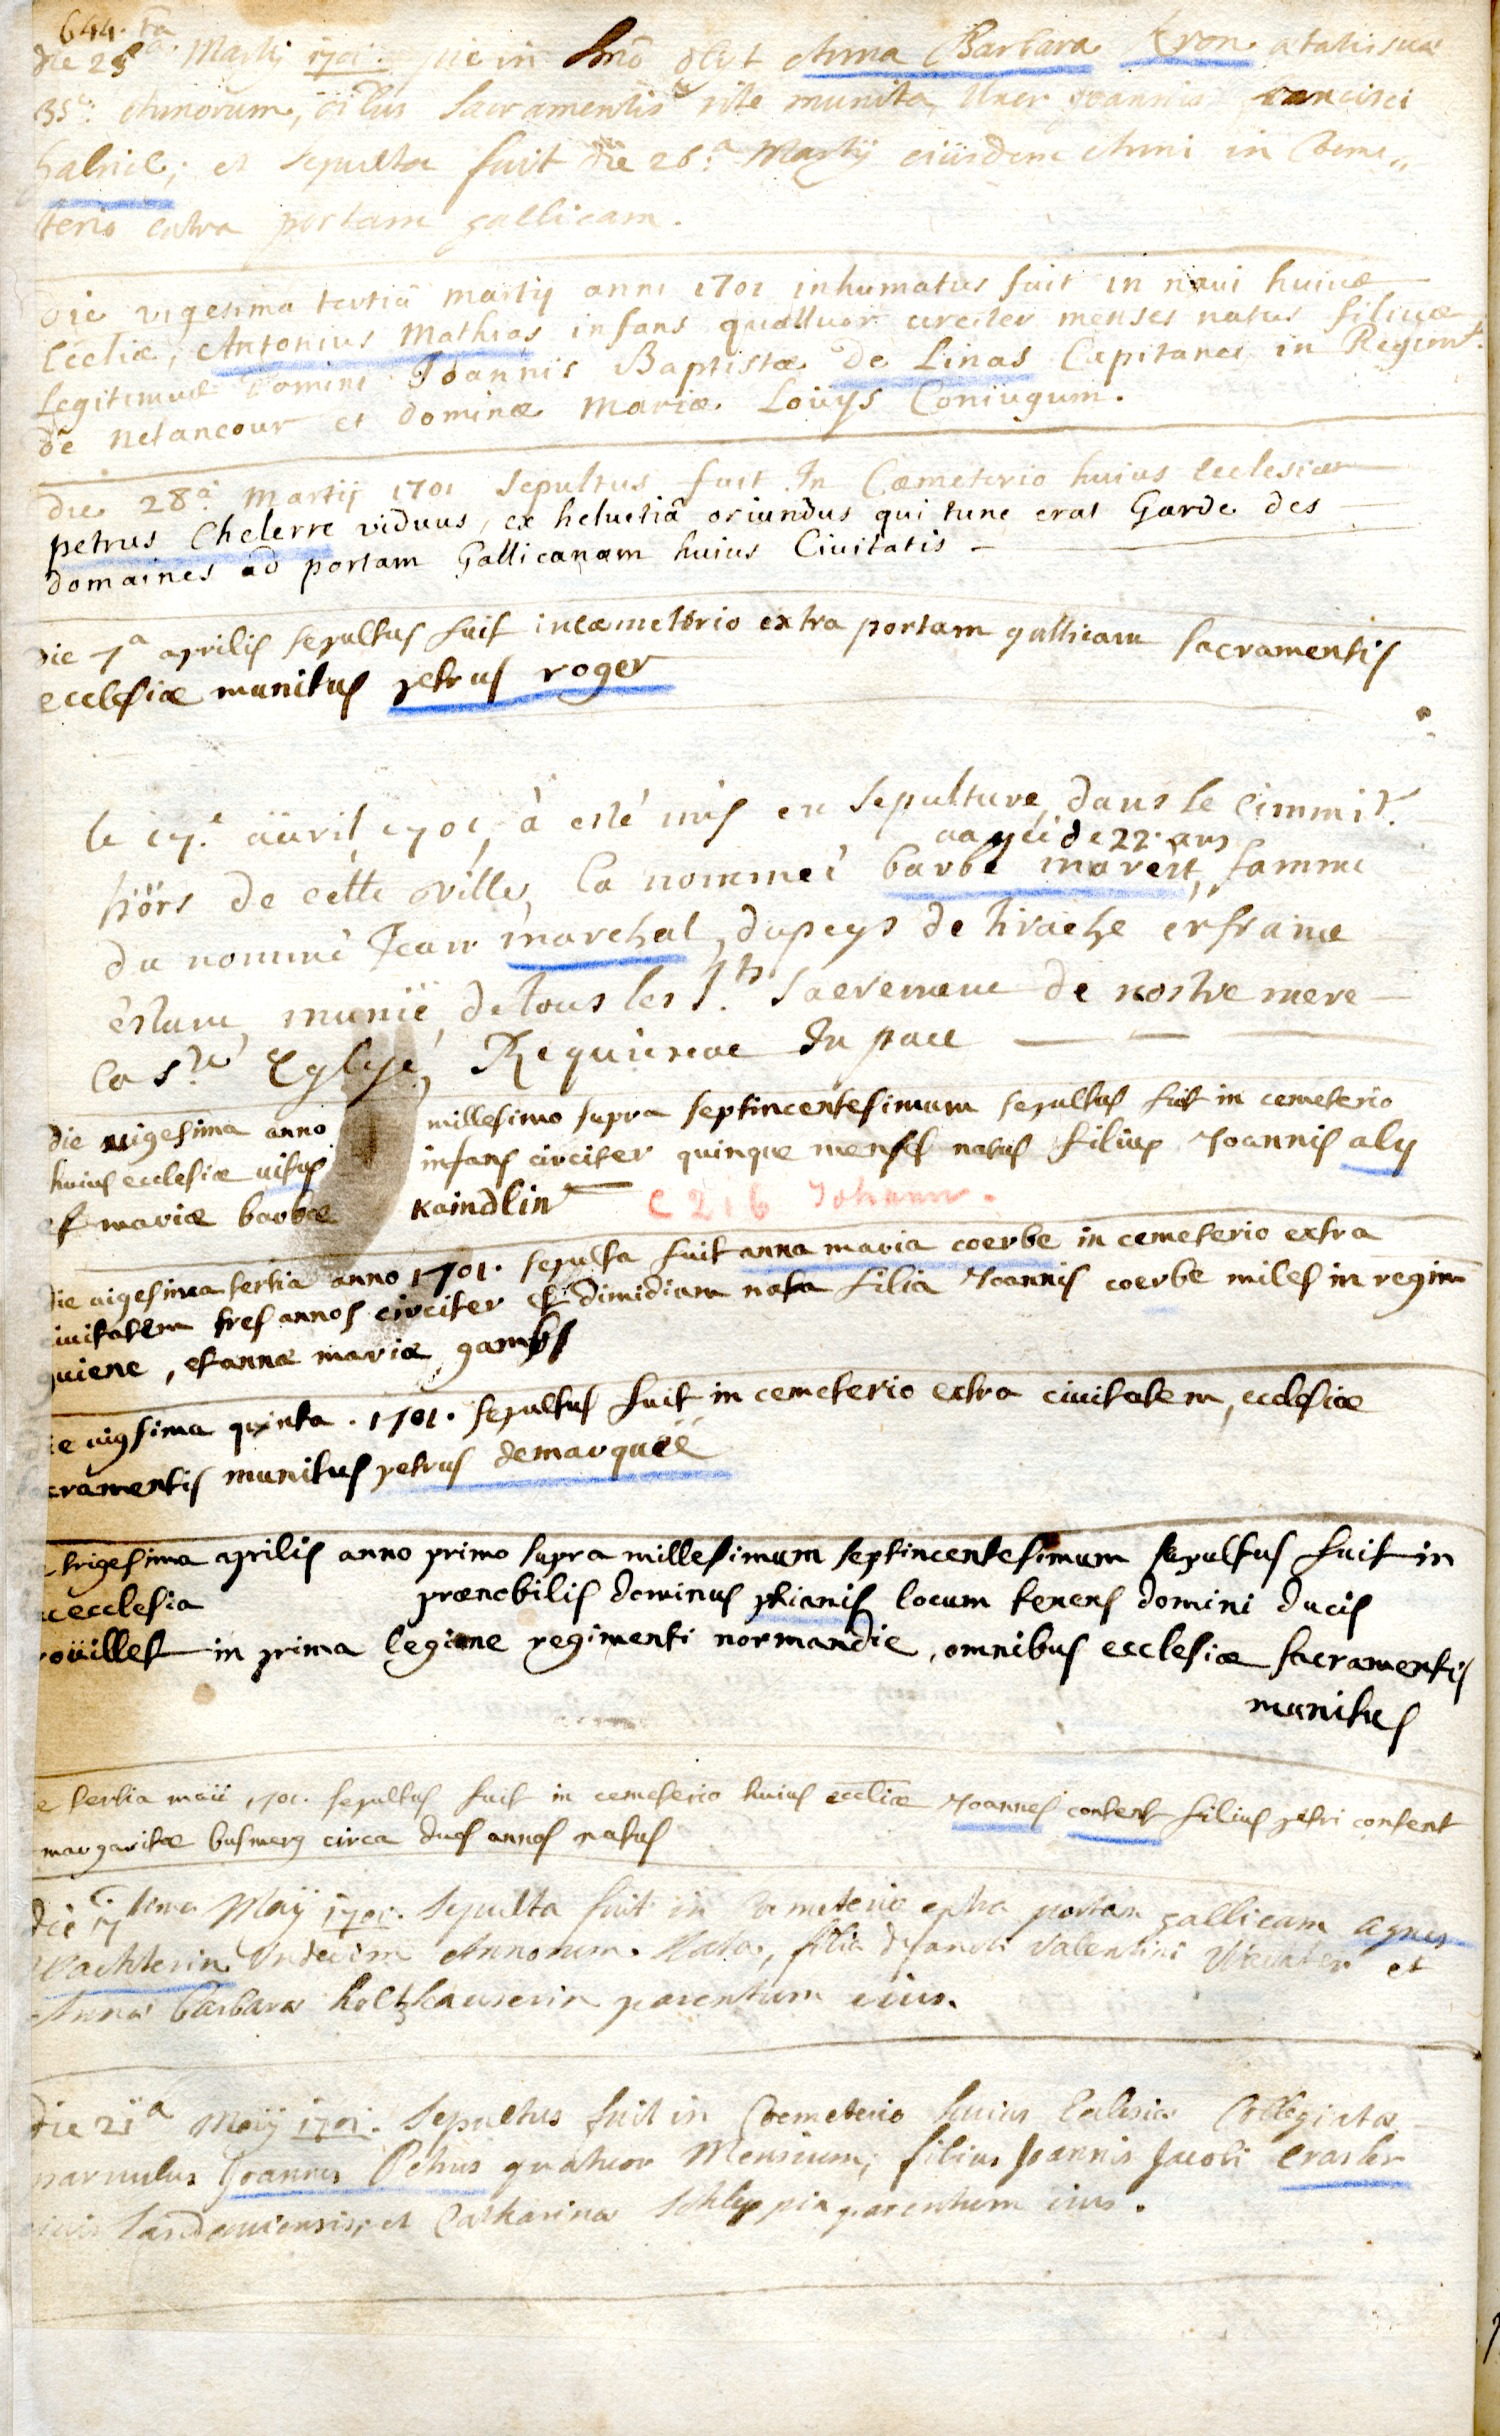 644. ta
die 25a Martij 1701. pie in Dno obijt Anna Barbara Kron ætatis suæ
35. Annorum, oibus Sacramentis rite munita, Uxor Joannis Francisci
Gabriel; et sepulta fuit die 26.a Martij eiusdem Anni in Cœme„
terio extra portam gallicam.
Die vigesima tertiâ martij anni 1701 inhumatus fuit in navi huius
Eccliæ, Antonius Mathias infans quattuor circiter menses natus filius
Legitimus Domini Joannis Baptistæ De Linas Capitanei in Regimt.
de Netancour et Dominæ Mariæ Louys Coniugum.
Die 28.a Martij 1701 Sepultus fuit In Cæmeterio huius Ecclesiæ
petrus Chelerre viduus, ex helvetiâ oriundus qui tunc erat Garde des
domaines ad portam Gallicanam huius Civitatis
Die 7a aprilis sepultus fuit in cæmeterio extra portam gallicam sacramentis
ecclesiæ munitus petrus roger
le 17.e auvril 1701 à esté mis en sepulture, dans le Cimmit.
aagéé de 22. ans
hörs de cétte ville, la nommeé barbe marert, famme
du nommé Jean marchal, du peys de tirache en france
éstant munië de tous les S.ts Sacrement de nostre mere
la s.te Eglise, Requiescat In pace
die uigesima anno millesimo supra septincentesimum sepultus fuit in cemeterio
huius ecclesiæ uitus infans circiter quinque menses natus filius Joannis aly
et mariæ barbæ Kaindlin C 216 Johann.
die uigesima tertia anno 1701. sepulta fuit anna maria coerbe in cemeterio extra
ciuitatem tres annos circiter et dimidiam nata filia Joannis coerbe miles in regim
guiene, et annæ mariæ gambs
ie uigsima quinta. 1701. sepultus fuit in cemeterio extra ciuitatem, ecclesiæ
cramentis munitus petrus demarquëë
trigesima aprilis anno primo supra millesimum septincentesimum sepultus fuit in
ecclesia prænobilis dominus locum tenens domini ducis
rouillet in prima legione regimenti normandie, omnibus ecclesiæ sacramentis
munitus
e tertia maii 1701. sepultus fuit in cemeterio huius eccliæ Joannes content filius petri content
margaritæ busmerg circa duos annos natus
die 17 tima Maÿ 1701. Sepulta fuit in Cæmeterio extra portam gallicam Agnes
Wachterin Undecim Annorum Nata, filia defuncti Valentini Wachter et
Anna Barbara holtzhauserin parentum eius.
die 21a Maÿ 1701. Sepultus fuit in Coemeterio huius Eclesiæ Collegiatæ
parvulus Joannes Petrus quatuor Mensium, filius Joannis Jacobi Erasler
civis Landaviensis, et Catharina parentum eius.